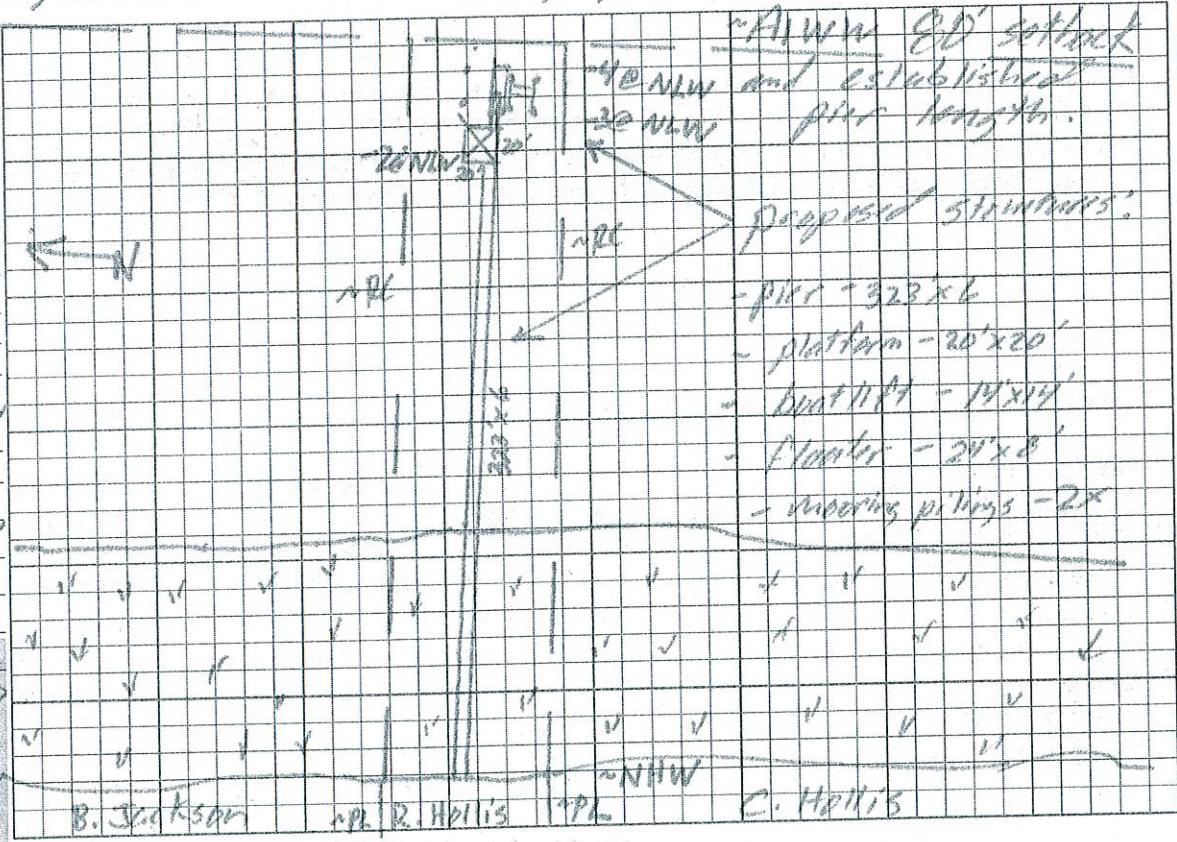 ~AIWW 80' setback
and established
pier length.
-4@ NLW
-3@ NLW
-2@ NLW
20'
20'
N
~PL
~PL
proposed structures:
- pier - 323'x6
- platform - 20'x20'
- boatlift - 14'x14'
- floater - 24'x8'
- mooring pilings - 2x
323'x6
~NHW
B. Jackson
~PL
R. Hollis
~PL
C. Hollis